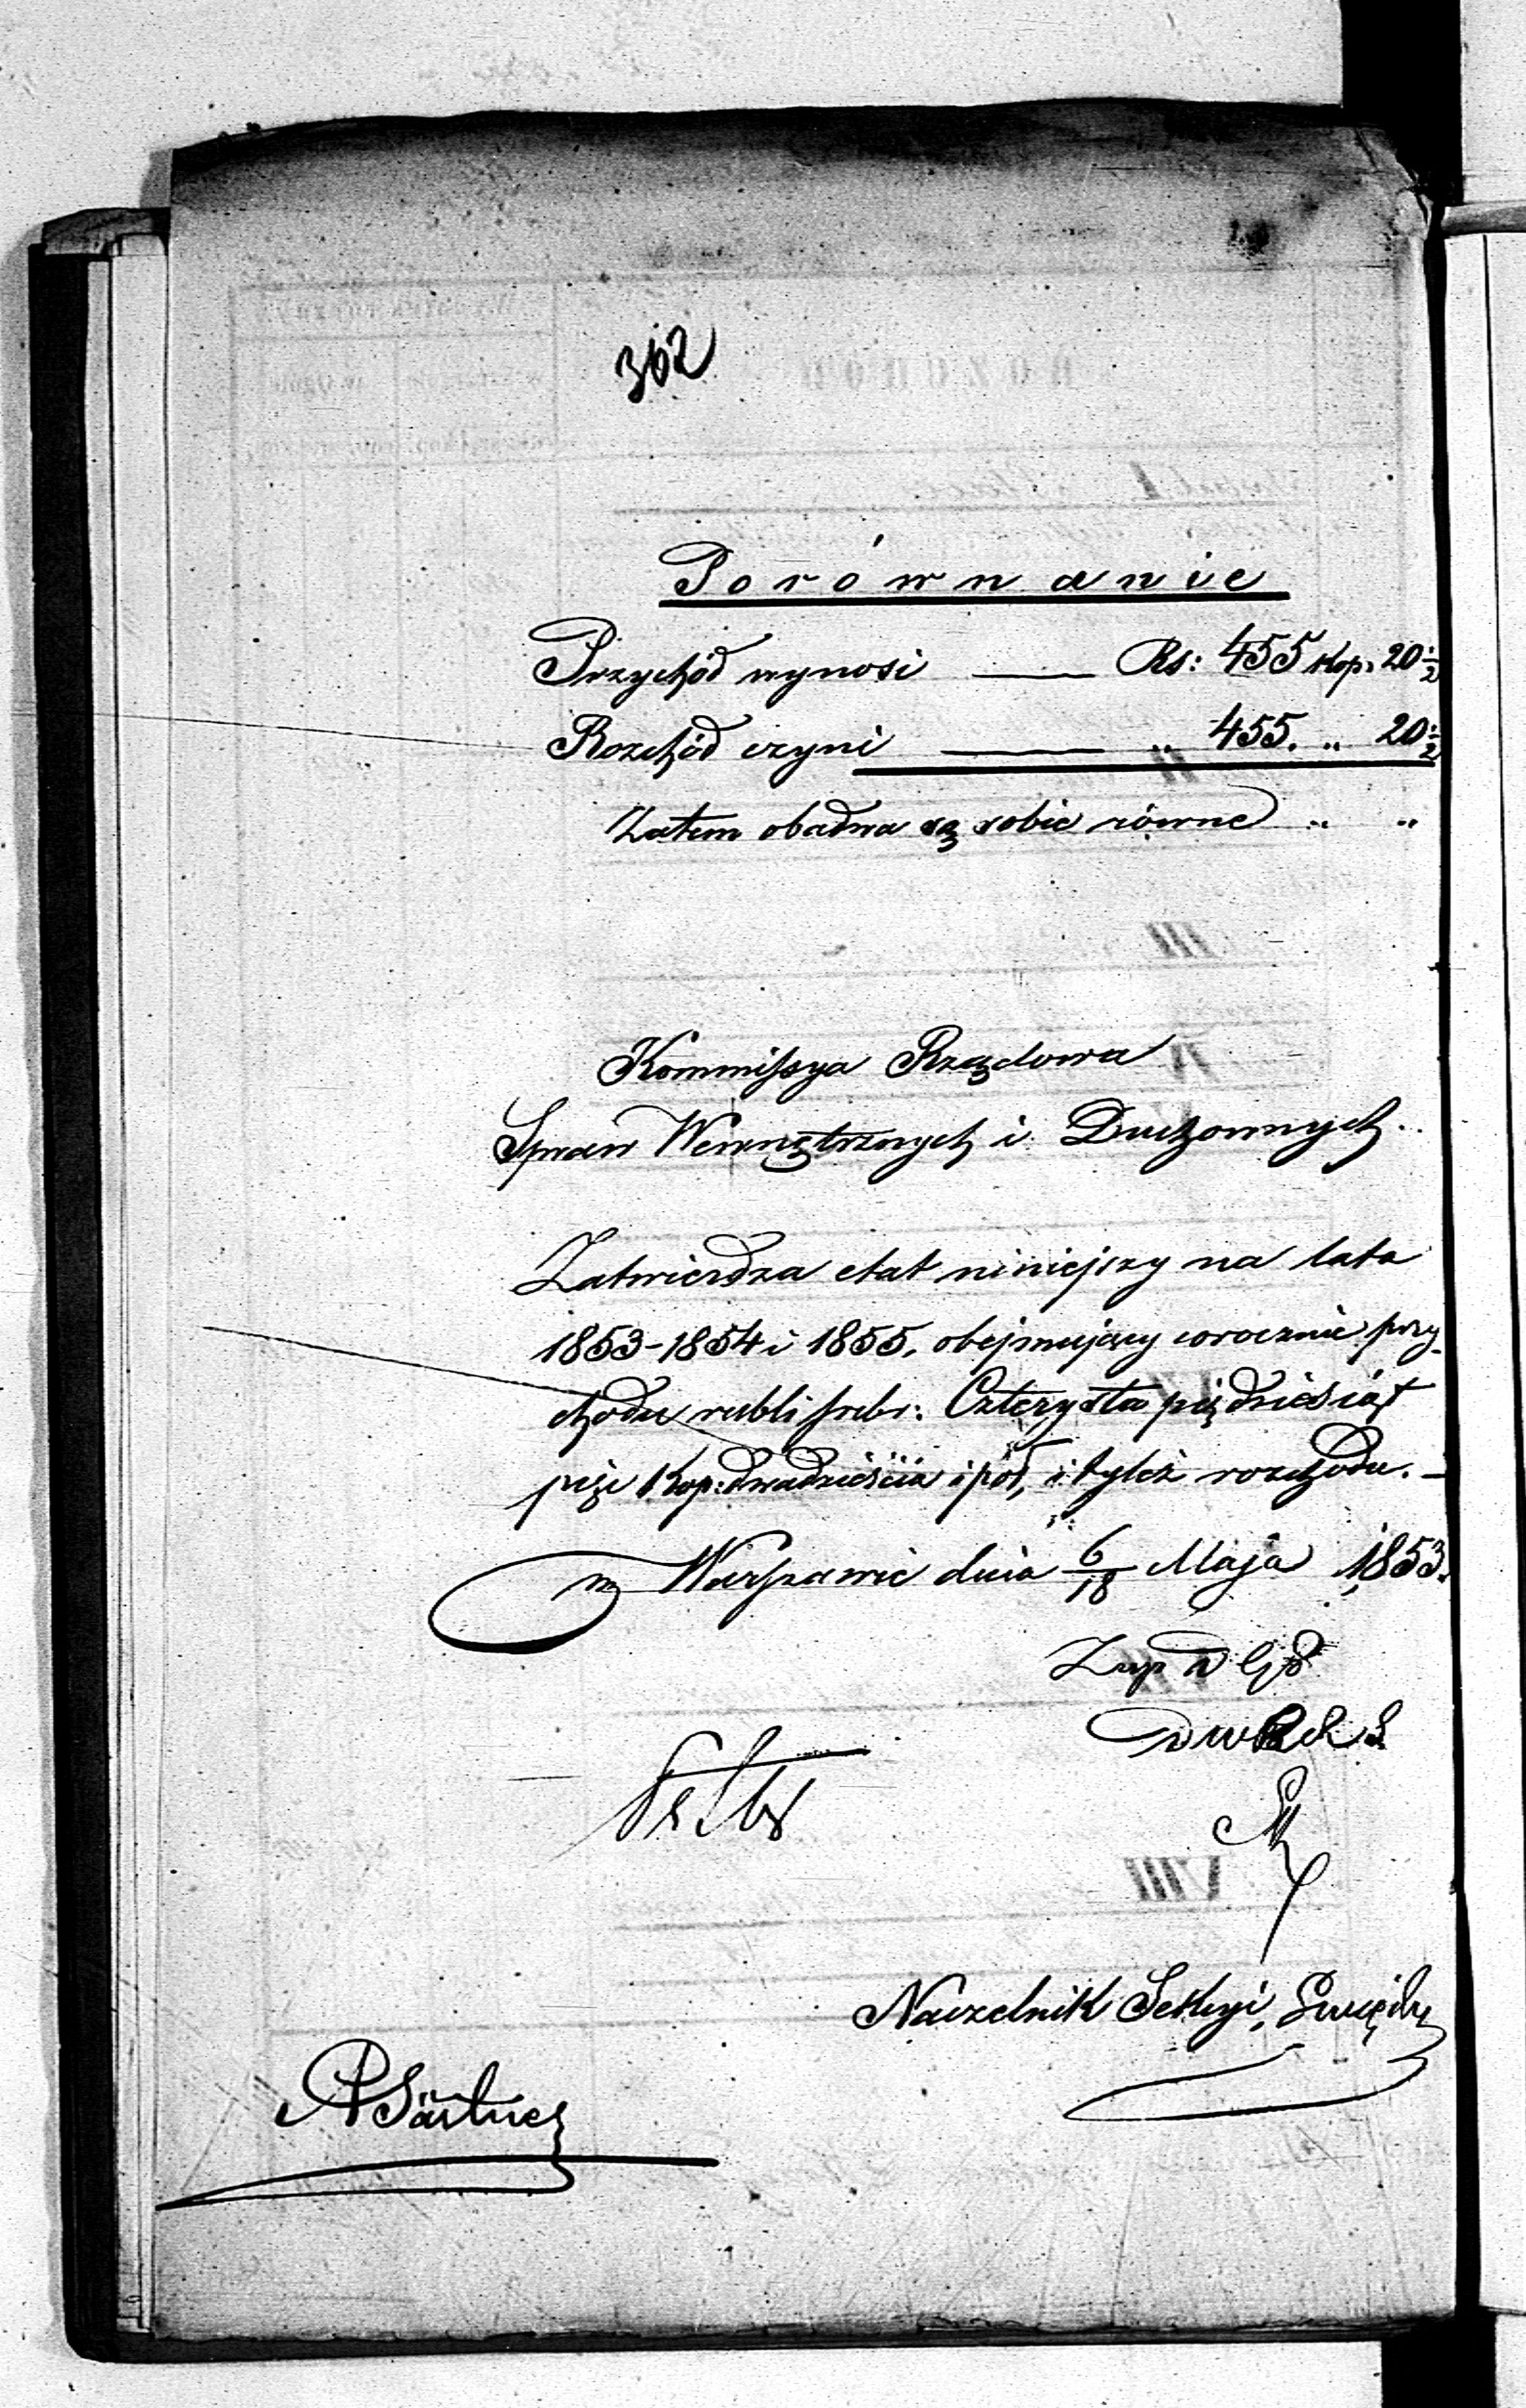 362
Porównanie
Przychód wynosi —— Rs: 455 kop. 20½
Rozchód czyni —— „ 455. „ 20½
Zatem obadwa są sobie równe „ „
Kommissya Rządowa
Spraw Wewnętrznych i Duchownych.
Zatwierdza etat niniejszy na lata
1853-1854 i 1855. obejmujący corocznie przy-
chodu rubli srebr: Czterysta pięćdziesiąt
pięć kop: dwadzieścia i pół, i tyleż rozchodu. —
w Warszawie dnia 6/18 Maja 1853.
Naczelnik Sekcyi,